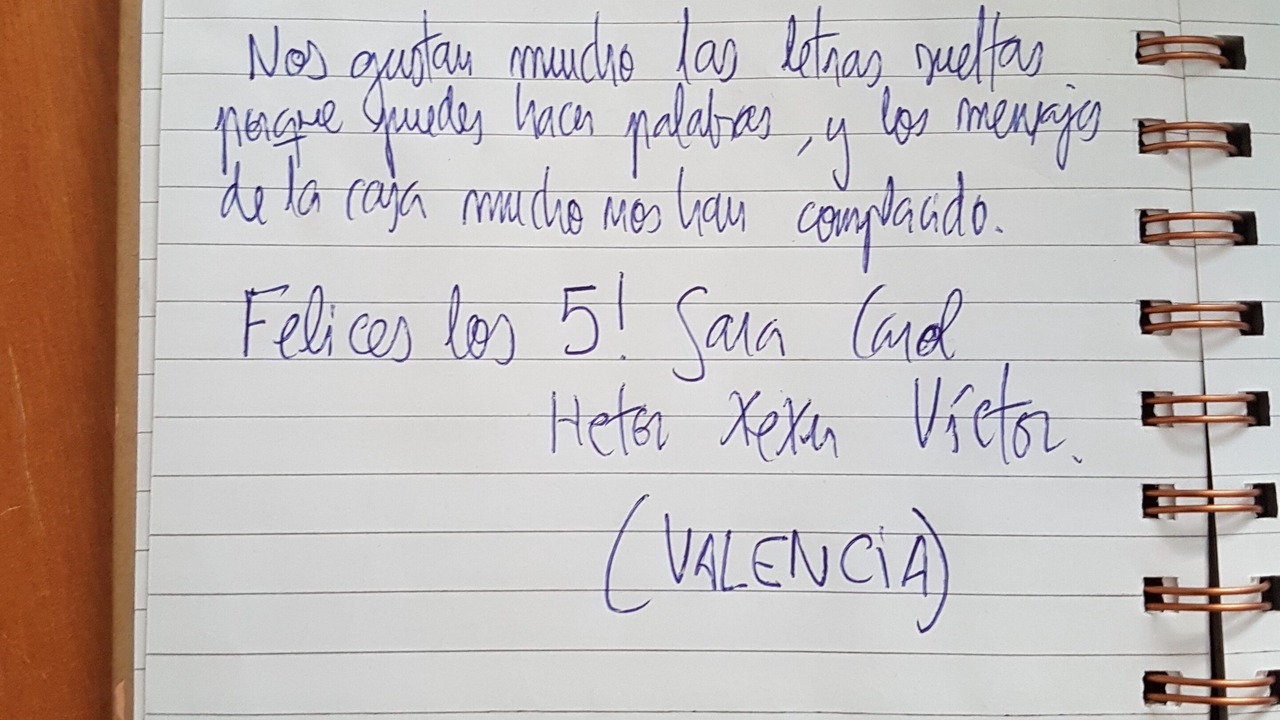 Nos gustan mucho las letras sueltas
porque puedes hacer palabras, y los mensajes
de la casa mucho nos han complacido.
Felices los 5! Sara Carol
Hetor Xexu Víctor.
(VALENCIA)